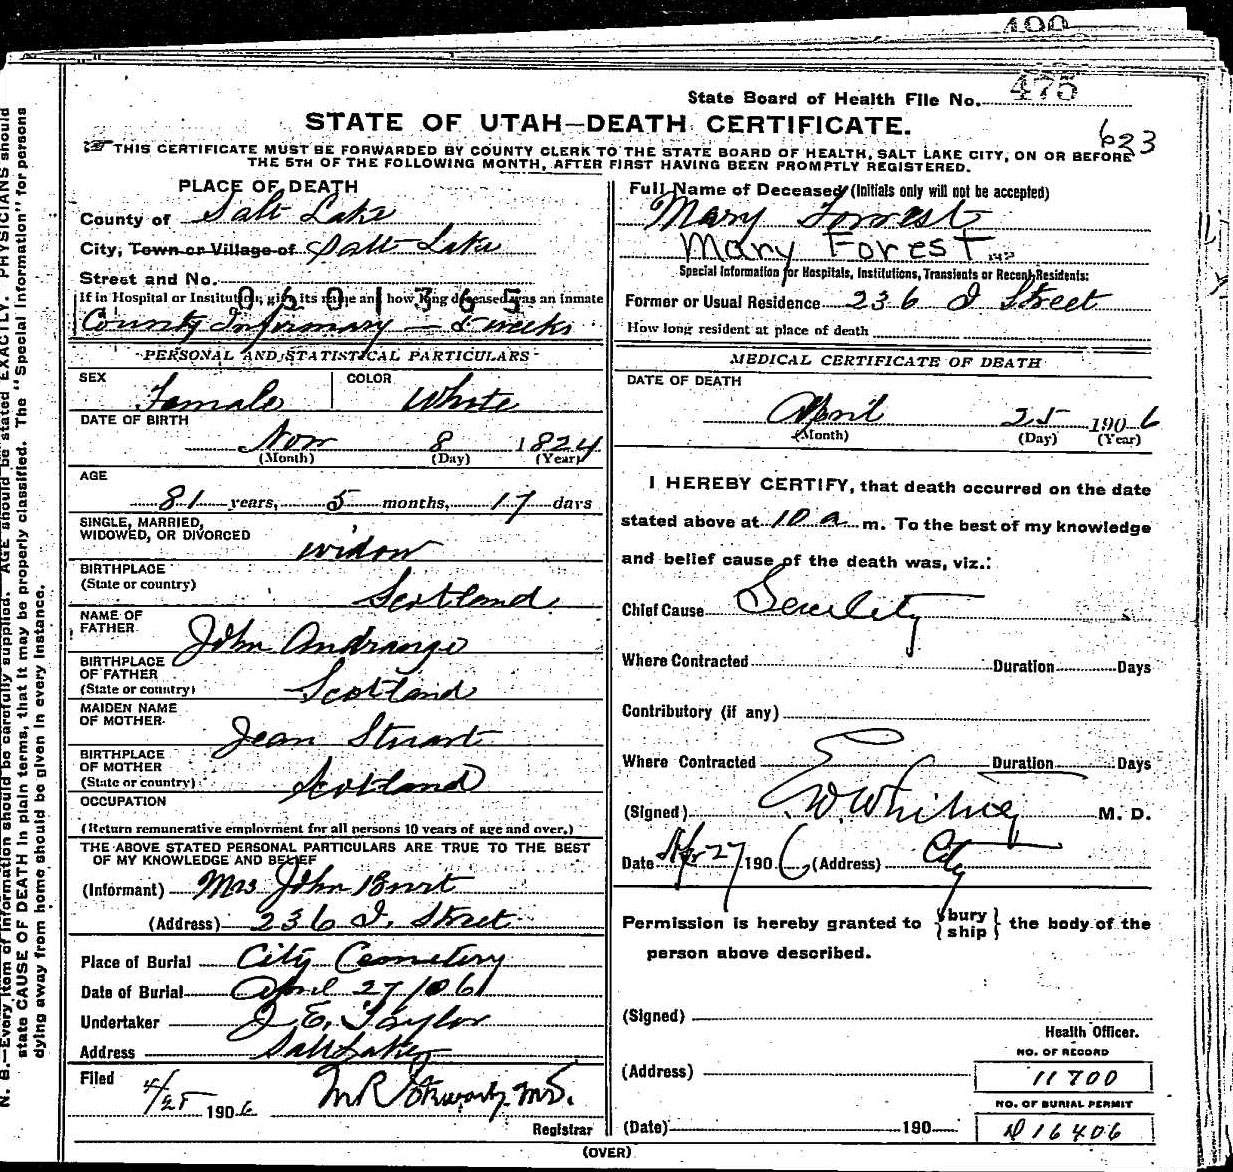 400
State Board of Health File No. 475
STATE OF UTAH—DEATH CERTIFICATE.
623
THIS CERTIFICATE MUST BE FORWARDED BY COUNTY CLERK TO THE STATE BOARD OF HEALTH, SALT LAKE CITY, ON OR BEFORE
THE 5TH OF THE FOLLOWING MONTH, AFTER FIRST HAVING BEEN PROMPTLY REGISTERED.
PLACE OF DEATH
County of Salt Lake
City, Town or Village of Salt Lake
Street and No.
0601365
If in Hospital or Institution, give its name and how long deceased was an inmate
County Infirmary — 5 weeks
PERSONAL AND STATISTICAL PARTICULARS
SEX Female COLOR White
DATE OF BIRTH
Nov 8 1824
(Month) (Day) (Year)
AGE
81 years, 5 months, 17 days
SINGLE, MARRIED,
WIDOWED, OR DIVORCED widow
BIRTHPLACE
(State or country) Scotland
NAME OF
FATHER John
BIRTHPLACE
OF FATHER
(State or country) Scotland
MAIDEN NAME
OF MOTHER Jean Stuart
BIRTHPLACE
OF MOTHER
(State or country) Scotland
OCCUPATION
(Return remunerative employment for all persons 10 years of age and over.)
THE ABOVE STATED PERSONAL PARTICULARS ARE TRUE TO THE BEST
OF MY KNOWLEDGE AND BELIEF
(Informant) Mrs John Burt
(Address) 236 I. Street
Place of Burial City Cemetery
Date of Burial April 27/06
Undertaker J. E. Taylor
Address Salt Lake
Filed 4/25 1906 M.D.
Registrar
Full Name of Deceased (Initials only will not be accepted)
Mary Forrest
Mary Forest
Special Information for Hospitals, Institutions, Transients or Recent Residents:
Former or Usual Residence 236 I Street
How long resident at place of death
MEDICAL CERTIFICATE OF DEATH
DATE OF DEATH
April 25 1906
(Month) (Day) (Year)
I HEREBY CERTIFY, that death occurred on the date
stated above at 10 a m. To the best of my knowledge
and belief cause of the death was, viz.:
Chief Cause Senility
Where Contracted Duration Days
Contributory (if any)
Where Contracted Duration Days
(Signed) E. W. Whitney M. D.
Date Apr 27 1906 (Address) City
Permission is hereby granted to {bury ship} the body of the
person above described.
(Signed)
Health Officer.
NO. OF RECORD
(Address) 11700
NO. OF BURIAL PERMIT
(Date) 190 16406
(OVER)
N. B.—Every item of information should be carefully supplied. AGE should be stated EXACTLY. PHYSICIANS should
state CAUSE OF DEATH in plain terms, that it may be properly classified. The "Special Information" for persons
dying away from home should be given in every instance.